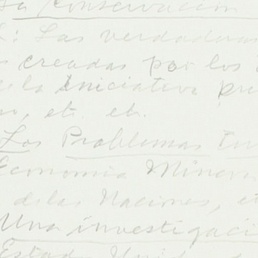 La conservación
: Las verdaderas
creadas por los
de la Iniciativa pr
so, et. et.
Los Problemas
Economía Minera
de las Naciones, et
Una investigaci
Estad